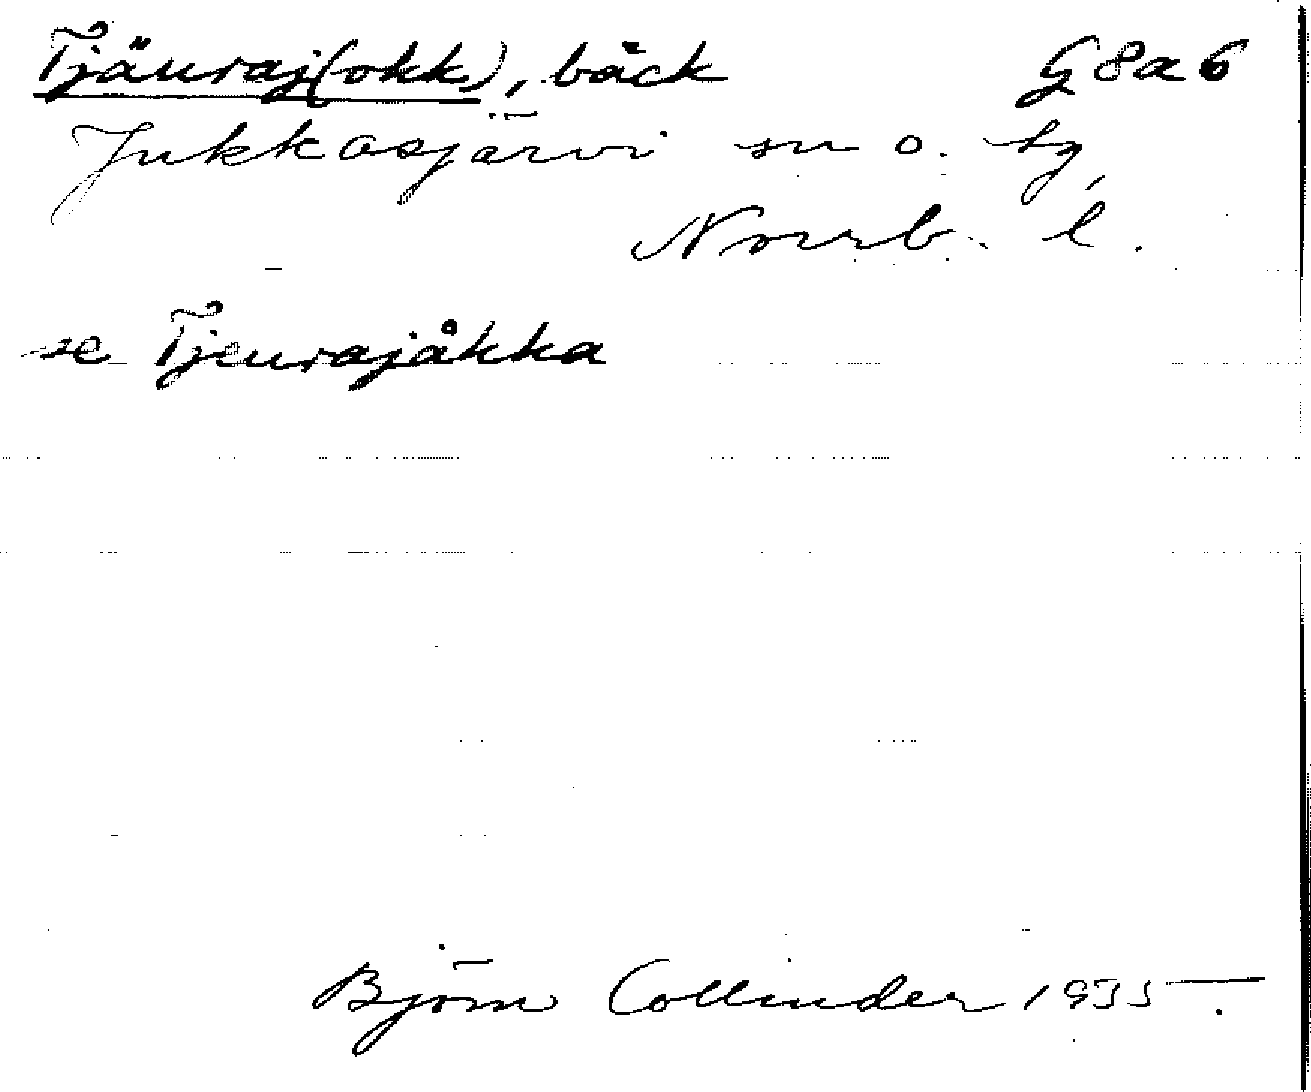 Tjäuraj(okk), bäck G 8 a 6
Jukkasjärvi sn o. tg,
Norrb. l.
se Tjeurajåkka
Björn Collinder 1935.